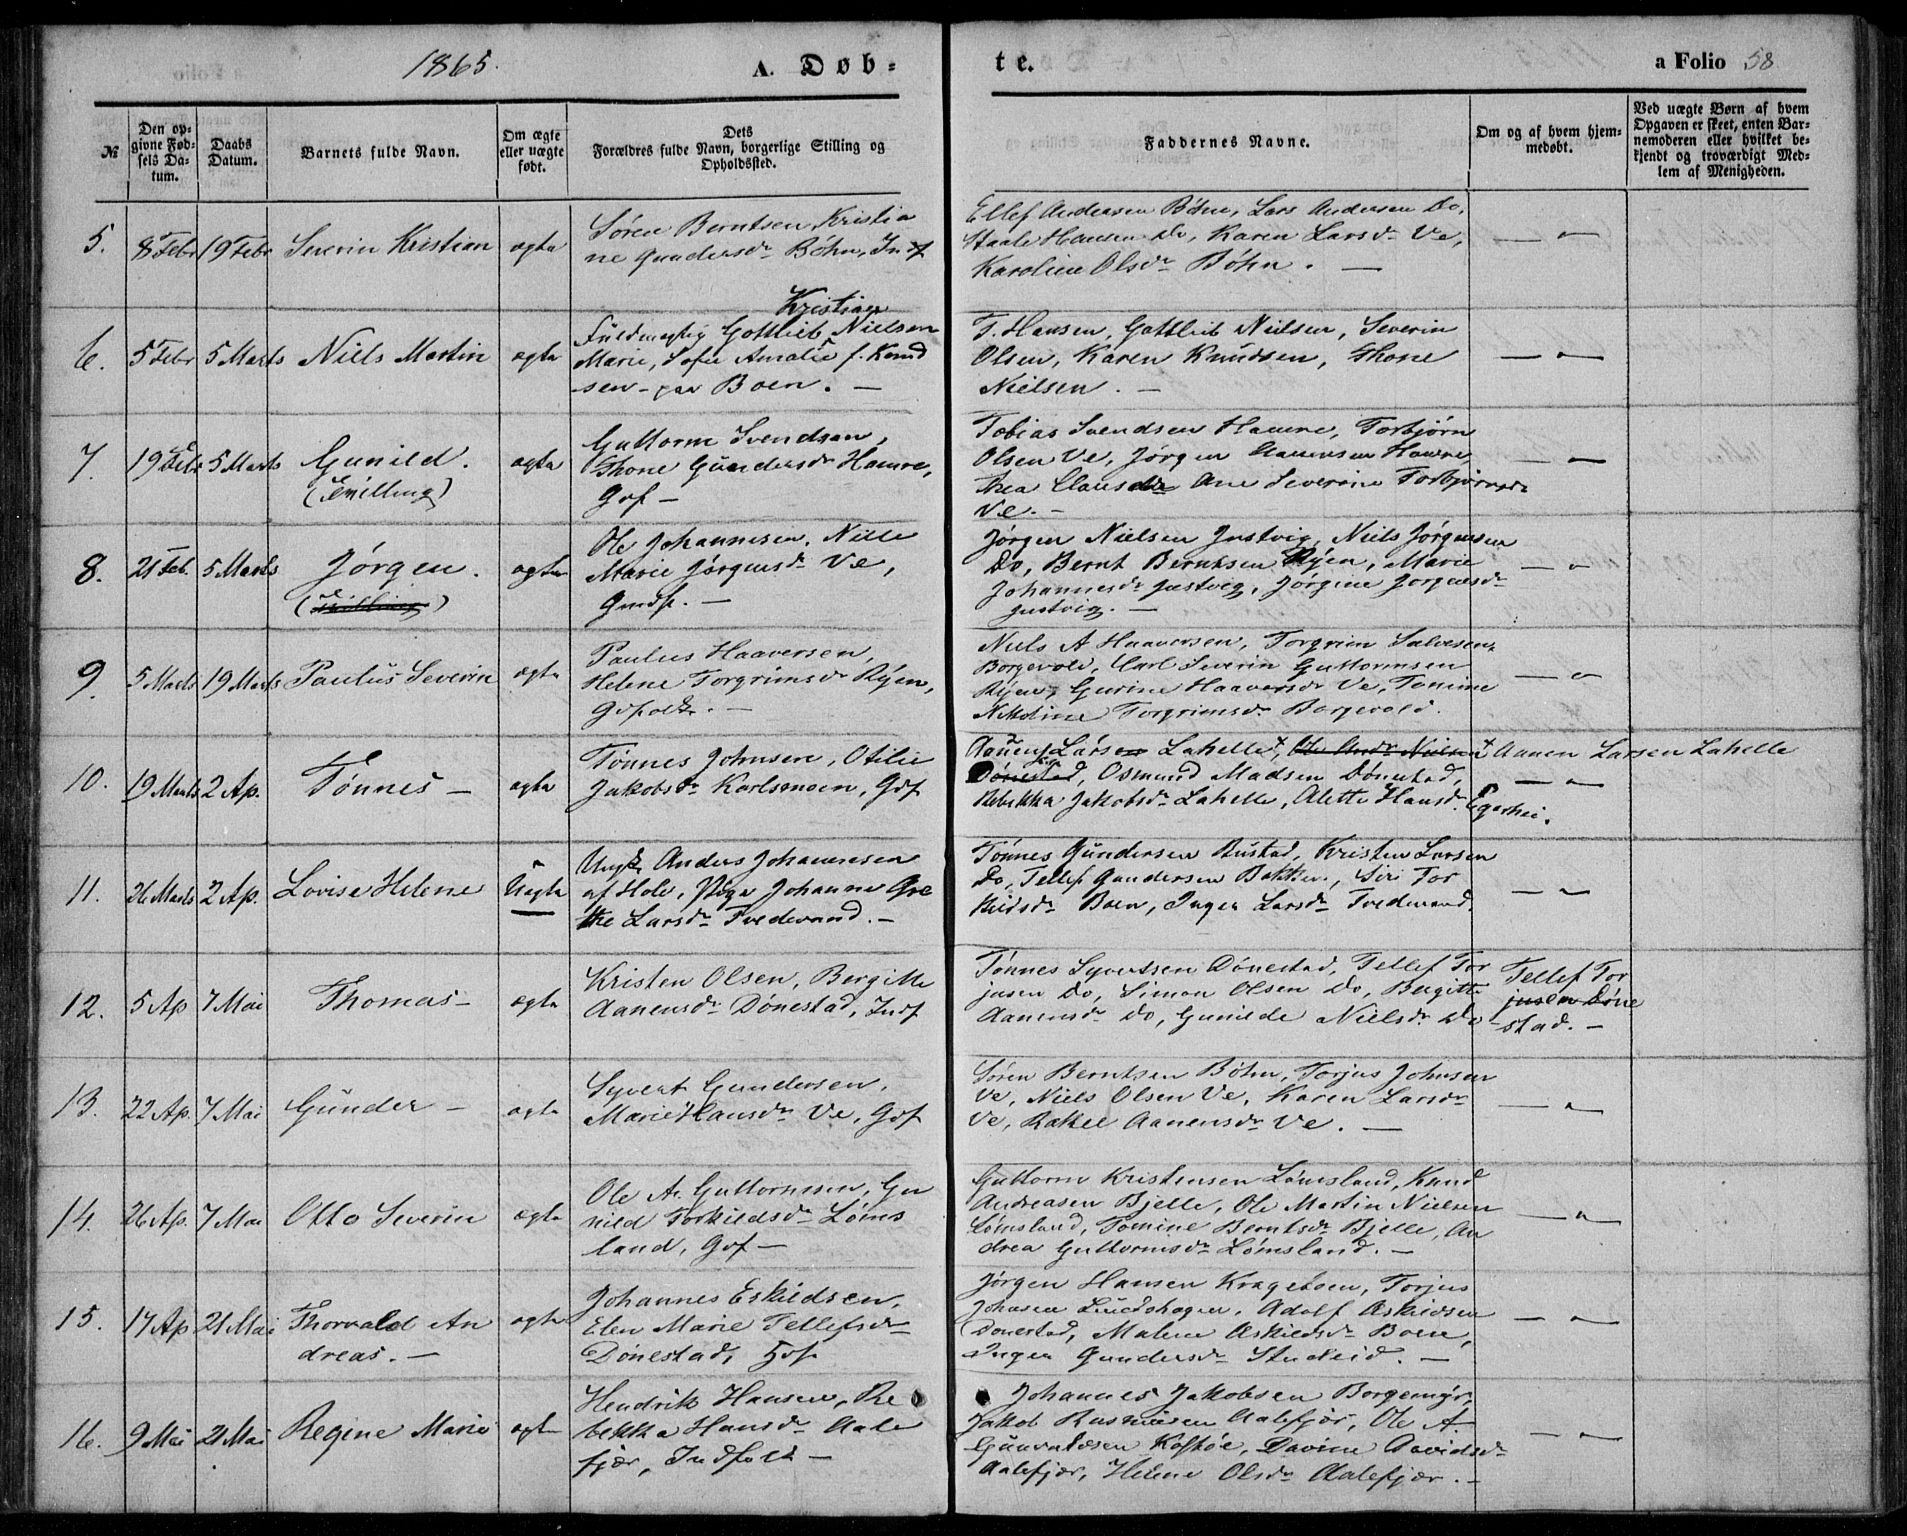 1865.
A. Døb-
te.
a Folio 58
№
Den op-
givne Fød-
sels Da-
tum.
Daabs
Datum.
Barnets fulde Navn.
Om ægte
eller uægte
født.
Dets
Forældres fulde Navn, borgerlige Stilling og
Opholdssted.
Faddernes Navne.
Om og af hvem hjem-
medøbt.
Ved uægte Børn af hvem
Opgaven er skeet, enten Bar-
nemoderen eller hvilket be-
kjendt og troværdigt Med-
lem af Menigheden.
5.
8 Febr
19 Febr
Severin Kristian
ægte
Søren Berntsen, Kristia
ne Gundersdr Bøhn, Indf
Ellef Andersen Bøhn, Lars Andersen Do,
Staale Hansen Do, Karen Larsdr Ve,
Karoline Olsdr Bøhn. —
— " —
6.
5 Febr
5 Marts
Niels Martin
ægte
Kristian
Fuldmægtig Gottlieb Nielsen
Marie, Sofie Amalie f. Knud
sen - paa Boen. —
T. Hansen, Gottlieb Nielsen, Severin
Olsen, Karen Knudsen, Thone
Nielsen. —
— " —
7.
19 Febr
5 Marts
Gunild.
(Tvilling)
ægte
Guttorm Svendsen,
Thone Gundersdr Hamre,
Gbf —
Tobias Svendsen Hamre, Torbjørn
Olsen Ve, Jørgen Clausen Hamre,
Thea Clausdr Ane Severine Torbjørnsdr
Ve. —
— " —
8.
21 Feb.
5 Marts
Jørgen.
(Tvilling)
ægte
Ole Johannesen, Nille
Marie Jørgensdr Ve,
Gmdf. —
Jørgen Nielsen Justvig, Niels Jørgensen
Do, Bernt Berntsen Ryen, Marie
Johannesdr Justvig, Jørgine Jørgensdr
Justvig. —
— " —
9.
5 Marts
19 Marts
Paulus Severin
ægte
Paulus Haaversen,
Helene Torgrimsdr Ryen,
Gbfolk. —
Niels A Haaversen, Torgrim Salvesen
Borgevold, Carl Severin Guttormsen
Ryen, Gurine Haaversdr Ve, Tomine
Nikoline Torgrimsdr Borgevold.
— " —
10.
19 Marts
2 Ap.
Tønnes —
ægte
Tønnes Johnsen, Otilie
Jakobsdr Karlsmoen, Gbf
Aanen Larsen Lahelle, Ole Andr Nielsen
Dønestad, Osmund Madsen Dønestad,
Rebekka Jakobsdr Lahelle, Alette Hansdr Egerhei.
Aanen Larsen Lahelle
— " —
11.
26 Marts
2 Ap.
Lovise Helene
Uægte
Ungk. Anders Johannesen
af Hole, Pige Johanne Gre
the Larsdr Tvedevand. —
Tønnes Gundersen Bustad, Kristen Larsen
Do, Tellef Gundersen Bakken, Siri Tor
kildsdr Boen, Inger Larsdr Tvedevand.
— " —
12.
5 Ap
7 Mai
Thomas —
ægte
Kristen Olsen, Bergitte
Aanensdr Dønestad, Indf
Tønnes Syvertsen Dønestad, Tellef Tor
jusen Do, Simon Olsen Do, Bergitte
Aanensdr Do, Gunilde Nielsdr Do
Tellef Tor
jusen Døne
stad. —
13.
22 Ap.
7 Mai
Gunder —
ægte
Syvert Gundersen,
Marie Hansdr Ve, Gbf
Søren Berntsen Bøhn, Torjus Johnsen
Ve, Niels Olsen Ve, Karen Larsdr
Ve, Rakel Aanensdr Ve. —
— " —
14.
26 Ap.
7 Mai
Otto Severin
ægte
Ole A. Guttormsen, Gu
nild Torkildsdr Løms
land, Gbf —
Guttorm Kristensen Lømsland, Knud
Andreasen Bjelle, Ole Martin Nielsen
Lømsland, Tomine Berntsdr Bjelle, An
drea Guttormsdr Lømsland. —
— " —
15.
17 Ap
21 Mai
Thorvald An
dreas. —
ægte
Johannes Eskildsen,
Elen Marie Tellefsdr
Dønestad, Hsf
Jørgen Hansen Krageboen, Torjus
Johnsen Lundshagen, Adolf Askildsen
Dønestad, Malene Askildsdr Boen,
Inger Gundersdr Studeid. —
— " —
16.
9 Mai
21 Mai
Regine Marie
ægte
Hendrik Hansen, Re
bekka Hansdr Aale
fjær, Indfolk —
Johannes Jakobsen Borgemyr,
Jakob Rasmusen Aalefjær, Ole A.
Gunvaldsen Kostøe, Davine Davidsdr
Aalefjær, Helene Olsdr Aalefjær. —
— " —